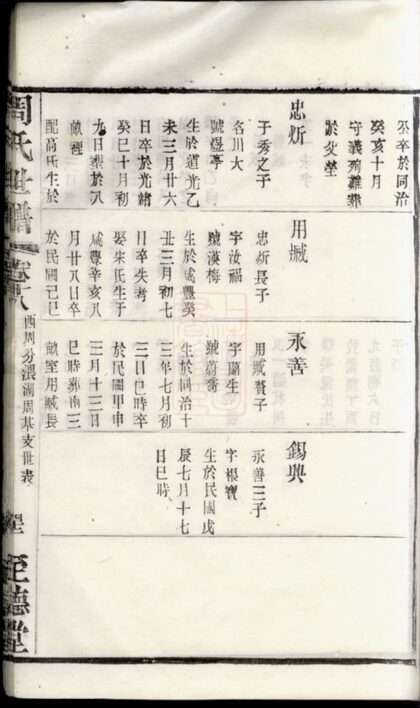 卒於同治
癸亥十月
守義殉難葬
於父塋
忠炘
于秀之子
名川大
號煜亭
生於道光乙
未三月廿六
日卒於光緒
癸巳十月初
九日葬於八
畝裡
配高氏生於
用臧
忠炘長子
字汝福
號漢梅
生於咸豐癸
丑三月初七
日卒失考
娶朱氏生于
咸豐辛亥八
月廿八日卒
於民國己巳
永善
用臧贅子
字蘭生
號蔚齋
生於同治十
三年七月初
三日巳時卒
於民國甲申
三月十三日
巳時葬南三
畝室用臧長
錫典
永善三子
字根寶
生於民國戊
辰七月十七
日巳時
周氏世譜
卷十八
西周分湖周基支世表
至德堂